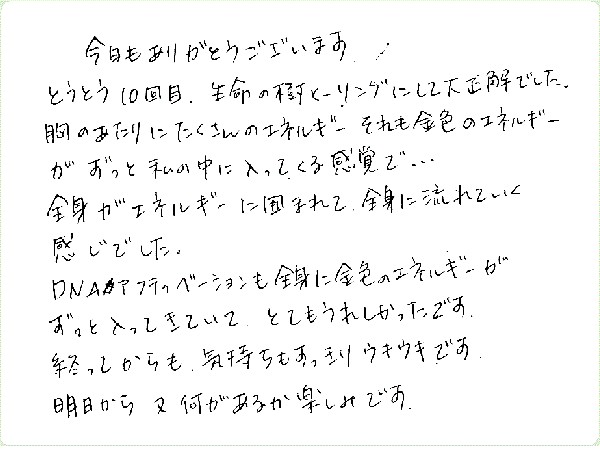 今日もありがとうございます。
とうとう10回目、生命の樹ヒーリングにして大正解でした。
胸のあたりにたくさんのエネルギー それも金色のエネルギー
が ずっと 私の中に入ってくる感覚で…
全身がエネルギーに囲まれて、全身に流れていく
感じでした。
DNAアクティベーションも全身に金色のエネルギーが
ずっと入ってきていて、とてもうれしかったです。
終ってからも、気持ちもすっきり ウキウキです。
明日から 又 何があるか楽しみです。